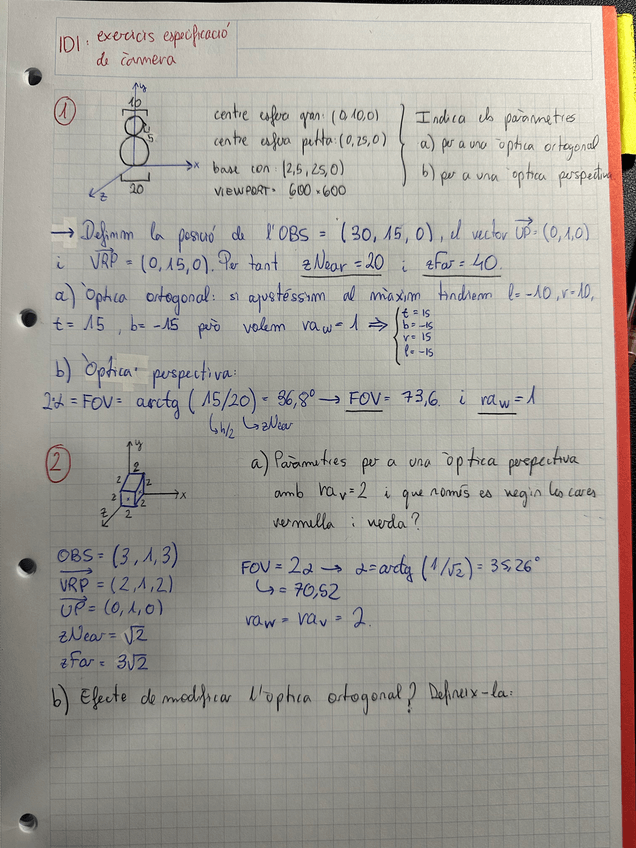 IDI: exercicis especificació
de càmera
1
y
10
5
x
z
20
centre esfera gran: (0,10,0)
centre esfera petita: (0,25,0)
base con: (2,5,25,0)
VIEWPORT: 600×600
Indica els paràmetres
a) per a una òptica ortogonal
b) per a una òptica perspectiva
→ Definim la posició de l'OBS = (30, 15, 0), el vector UP = (0,1,0)
i VRP = (0,15,0). Per tant zNear = 20 i zFar = 40.
a) Òptica ortogonal: si ajustéssim al màxim tindriem l=-10, r=10,
t = 15, b=-15 però volem raw = 1 ⇒
t = 15
b = -15
r = 15
l = -15
b) Òptica perspectiva:
2α = FOV = arctg (15/20) = 36,8° → FOV = 73,6. i raw = 1
↳ h/2 ↳ zNear
2
y
2
2
2
2
2
2
x
z
a) Paràmetres per a una òptica perspectiva
amb rav = 2 i que només es vegin les cares
vermella i verda?
OBS = (3, 1, 3)
VRP = (2, 1, 2)
UP = (0, 1, 0)
zNear = √2
zFar = 3√2
FOV = 2α → α = arctg (1/√2) = 35,26°
↳ = 70,52
raw = rav = 2.
b) Efecte de modificar l'òptica ortogonal? Defineix-la: